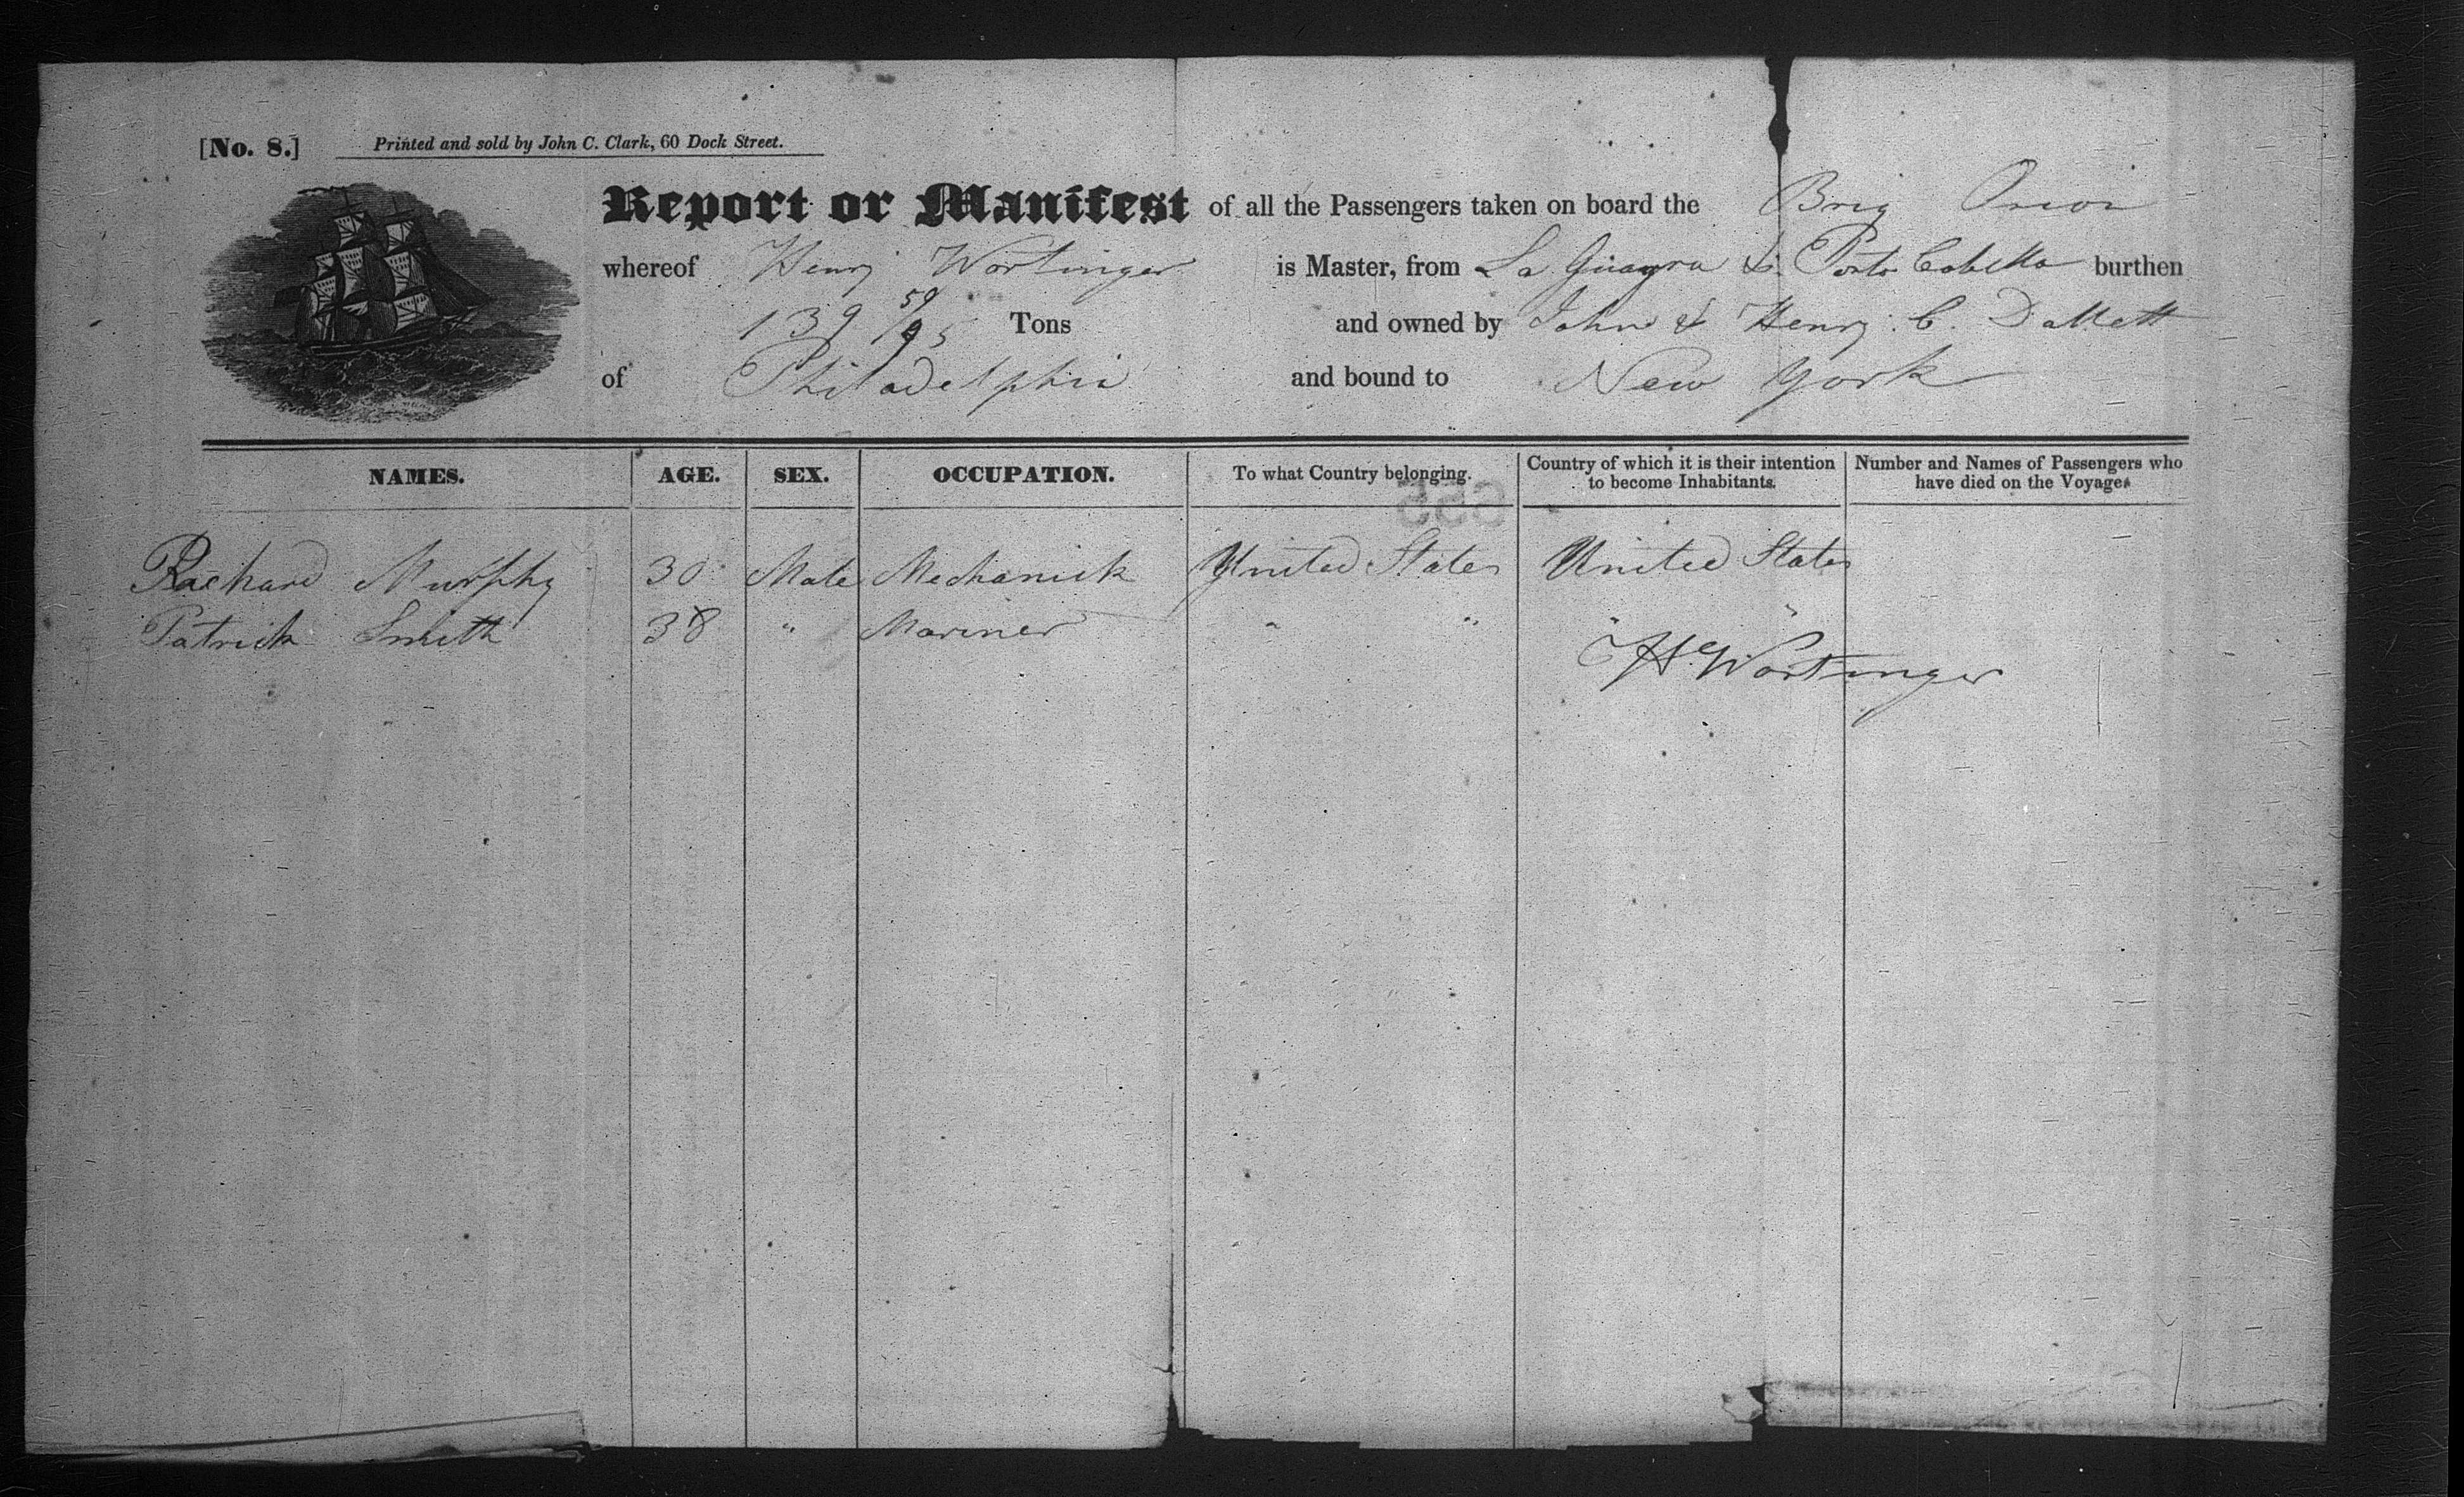 [No. 8.] Printed and sold by John C. Clark, 60 Dock Street.
Report or Manifest of all the Passengers taken on board the Brig Orion
whereof Henry Wortinger is Master, from La Guayra & Porto Cabello burthen
139 59/95 Tons and owned by John & Henry C. Dallett
of Philadelphia and bound to New York
NAMES. AGE. SEX. OCCUPATION. To what Country belonging. Country of which it is their intention to become Inhabitants. Number and Names of Passengers who have died on the Voyage.
555
Richard Murphy 30 Male Mechanick United States United States
Patrick Smith 38 " Mariner " " " "
H Wortinger